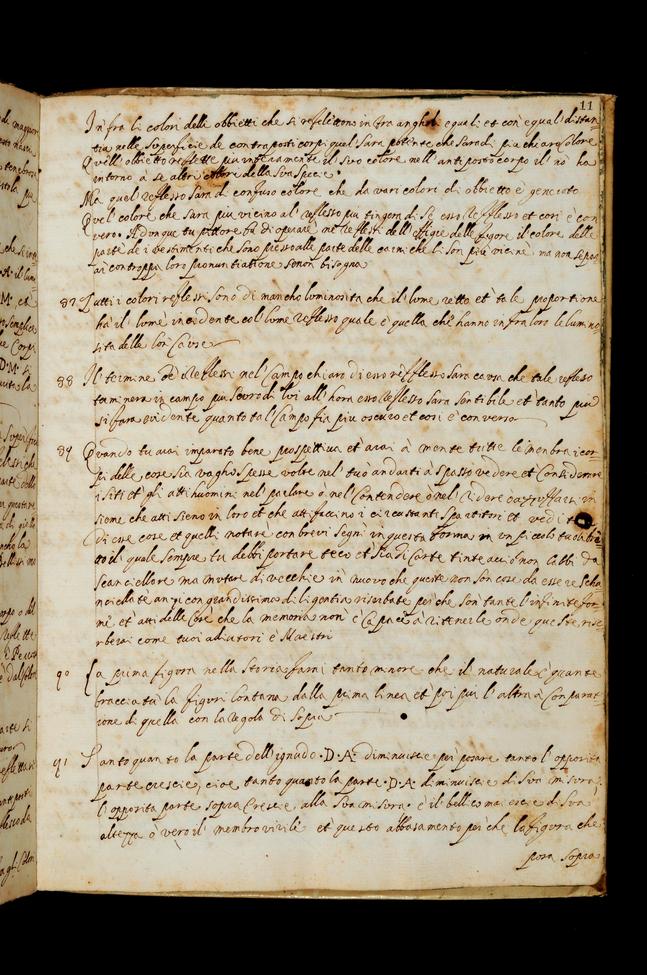 11
Infra li colori delli obbietti che si reflettono infra angholi eguali et con egual distan=
tia nelle superficie de contraposti corpi quel sara potente che sara di piu chiaro colore
Quell obbietto reflette piu interamente il suo colore nell'antiposto corpo il no ha
intorno a se altri colore della sua specie.
Ma quel reflesso sara di confuso colore che da vari colori di obbietto è generato
Quel colore che sara piu vicino al reflesso piu tingera di se esso refflesso et cosi è con
vero. Adonque tu pittore fa di operare ne reflessi dell'effigie delle figore il colore delle
parte de i vestimenti che sono presso alle parte delle carni che li son piu vicine ma non separ
ai con troppa loro pronuntiatione se non bisogna
87 Tutti i colori reflessi sono di mancho luminosita che il lume retto et tale proportione
ha il lume incidente col lume reflesso quale è quella che hanno infra loro le lumino
sita delle lor cause
88 Il termine de reflessi nel campo chiaro di esso refflesso sara causa che tale reflesso
terminera in campo piu scuro di lui all'hora esso reflesso sara sentibile et tanto piu
si fara evidente quanto tal campo fia piu oscuro et cosi è converso
89 Quando tu arai imparato bene prospettiva et arai à mente tutte le membra i cor=
pi delle cose sia vagho spesse volte nel tuo andarti à spasso vedere et considerare
i siti et gli atti huomini nel parlare ò nel contendere ò nel ridere ò azzuffarsi in
sieme che atti sieno in loro et che atti faccino i circustanti spartitori et vedi
di esse cose et quelli notare con brevi segni in questa forma in un piccolo tuo libre=
tto il quale sempre tu debbi portare teco et sia di carte tinte acciò non l'abbi da
scancellare ma mutare di vecchie in nuovo che queste non son cose da essere scha
ncellate anzi con grandissima diligentia riserbate perche son tante l'infinite for
me et atti delle cose che la memoria non è capace à ritenerle onde queste rise=
rberai come tuoi adiutori è Maestri
90 La prima figora nella storia farai tanto minore che il naturale è quante
braccia tu la figuri lontana dalla prima linea et poi piu l'altra à comparat=
ione di quella con la regola di sopra
91 Tanto quanto la parte dell'ignudo .D.A. diminuisce per posare tanto l'opposita
parte crescie, cioe tanto quanto la parte .D.A. diminuisce di sua misura
l'opposita parte sopra cresce alla sua misura è il bellico mai escie di sua
altezza ò vero il membro virile et questo abbasamento perche la figora che
posa sopra